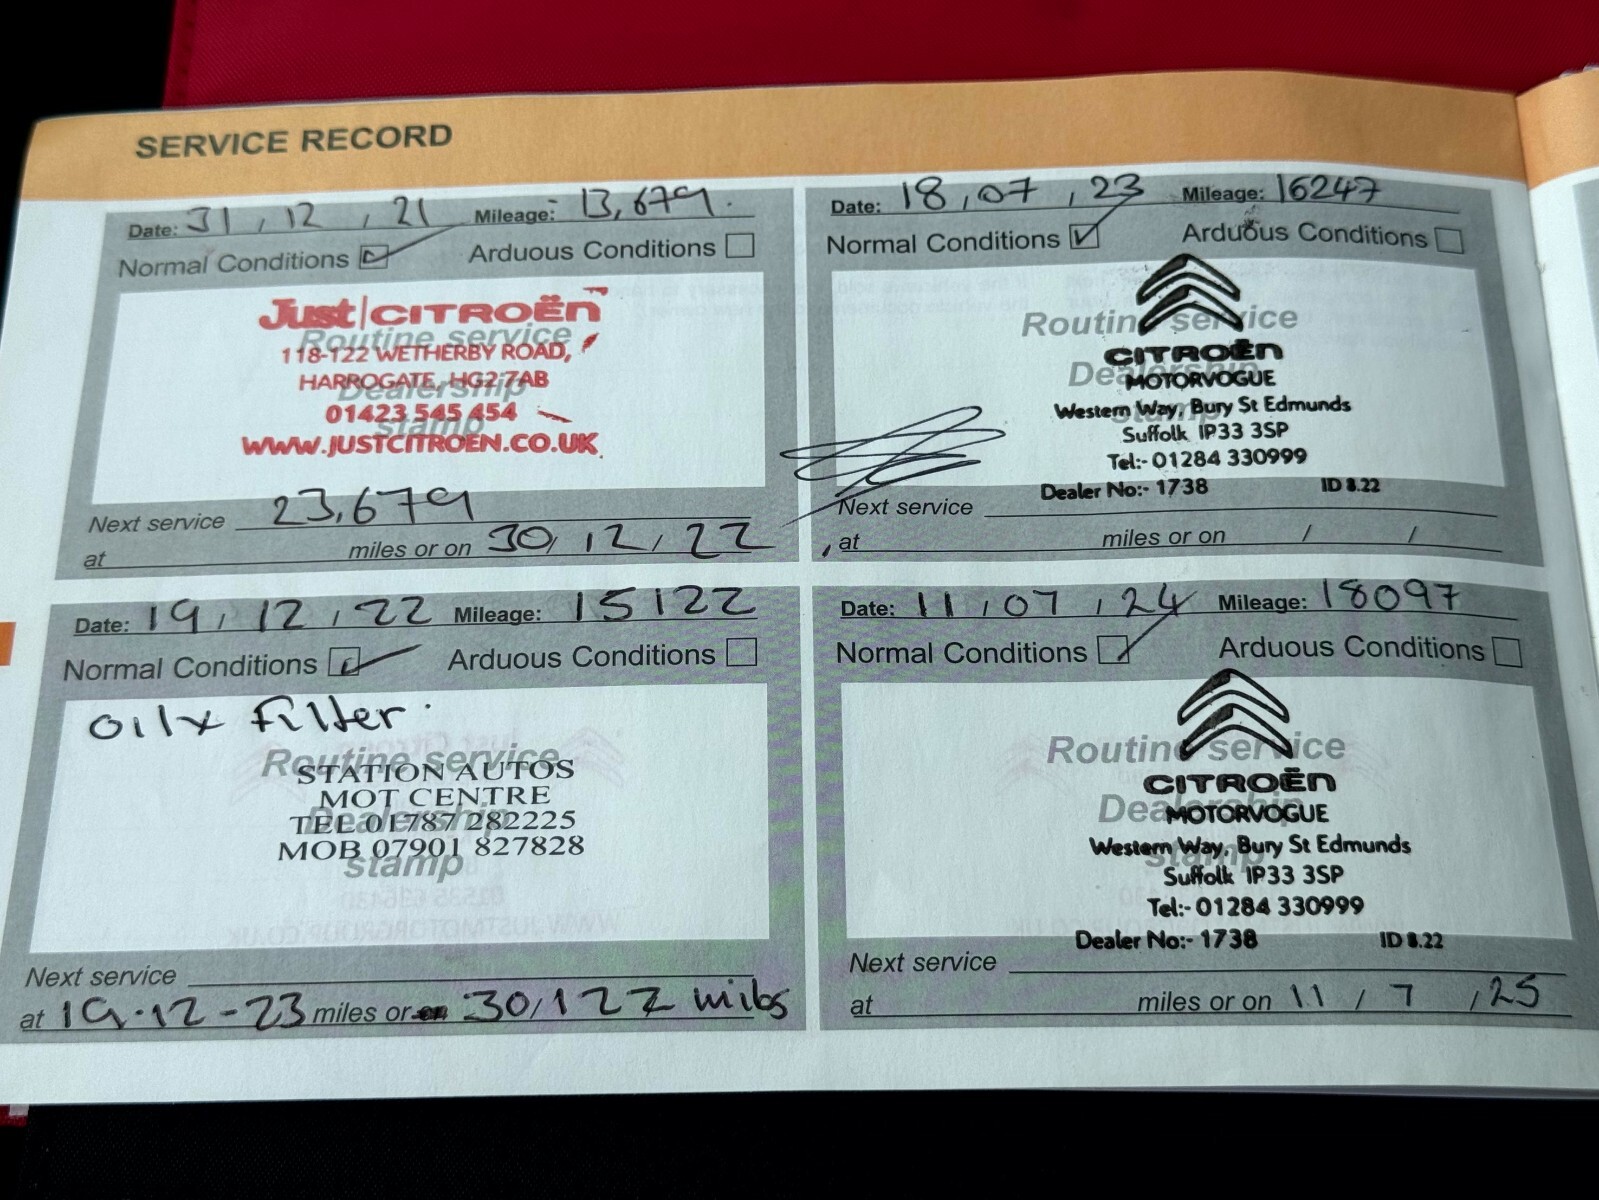 SERVICE RECORD
Date: 31 / 12 / 21 Mileage: 13,679.
Normal Conditions Arduous Conditions
Just|CITROËN
Routine service
118-122 WETHERBY ROAD,
HARROGATE, HG2 7AB
Dealership
01423 545 454
stamp
WWW.JUSTCITROEN.CO.UK
Next service 23,679
at miles or on 30 / 12 / 22
Date: 19 / 12 / 22 Mileage: 15122
Normal Conditions Arduous Conditions
oil x filter.
Routine service
STATION AUTOS
MOT CENTRE
Dealership
TEL 01787 282225
MOB 07901 827828
stamp
Next service
at 19.12-23 miles or on 30/122 miles
Date: 18 / 07 / 23 Mileage: 16247
Normal Conditions Arduous Conditions
Routine service
CITROËN
Dealership
MOTORVOGUE
Western Way, Bury St Edmunds
stamp
Suffolk IP33 3SP
Tel:- 01284 330999
Dealer No:- 1738 ID 8.22
Next service
at miles or on / /
Date: 11 / 07 / 24 Mileage: 18097
Normal Conditions Arduous Conditions
Routine service
CITROËN
Dealership
MOTORVOGUE
Western Way, Bury St Edmunds
stamp
Suffolk IP33 3SP
Tel:- 01284 330999
Dealer No:- 1738 ID 8.22
Next service
at miles or on 11 / 7 / 25